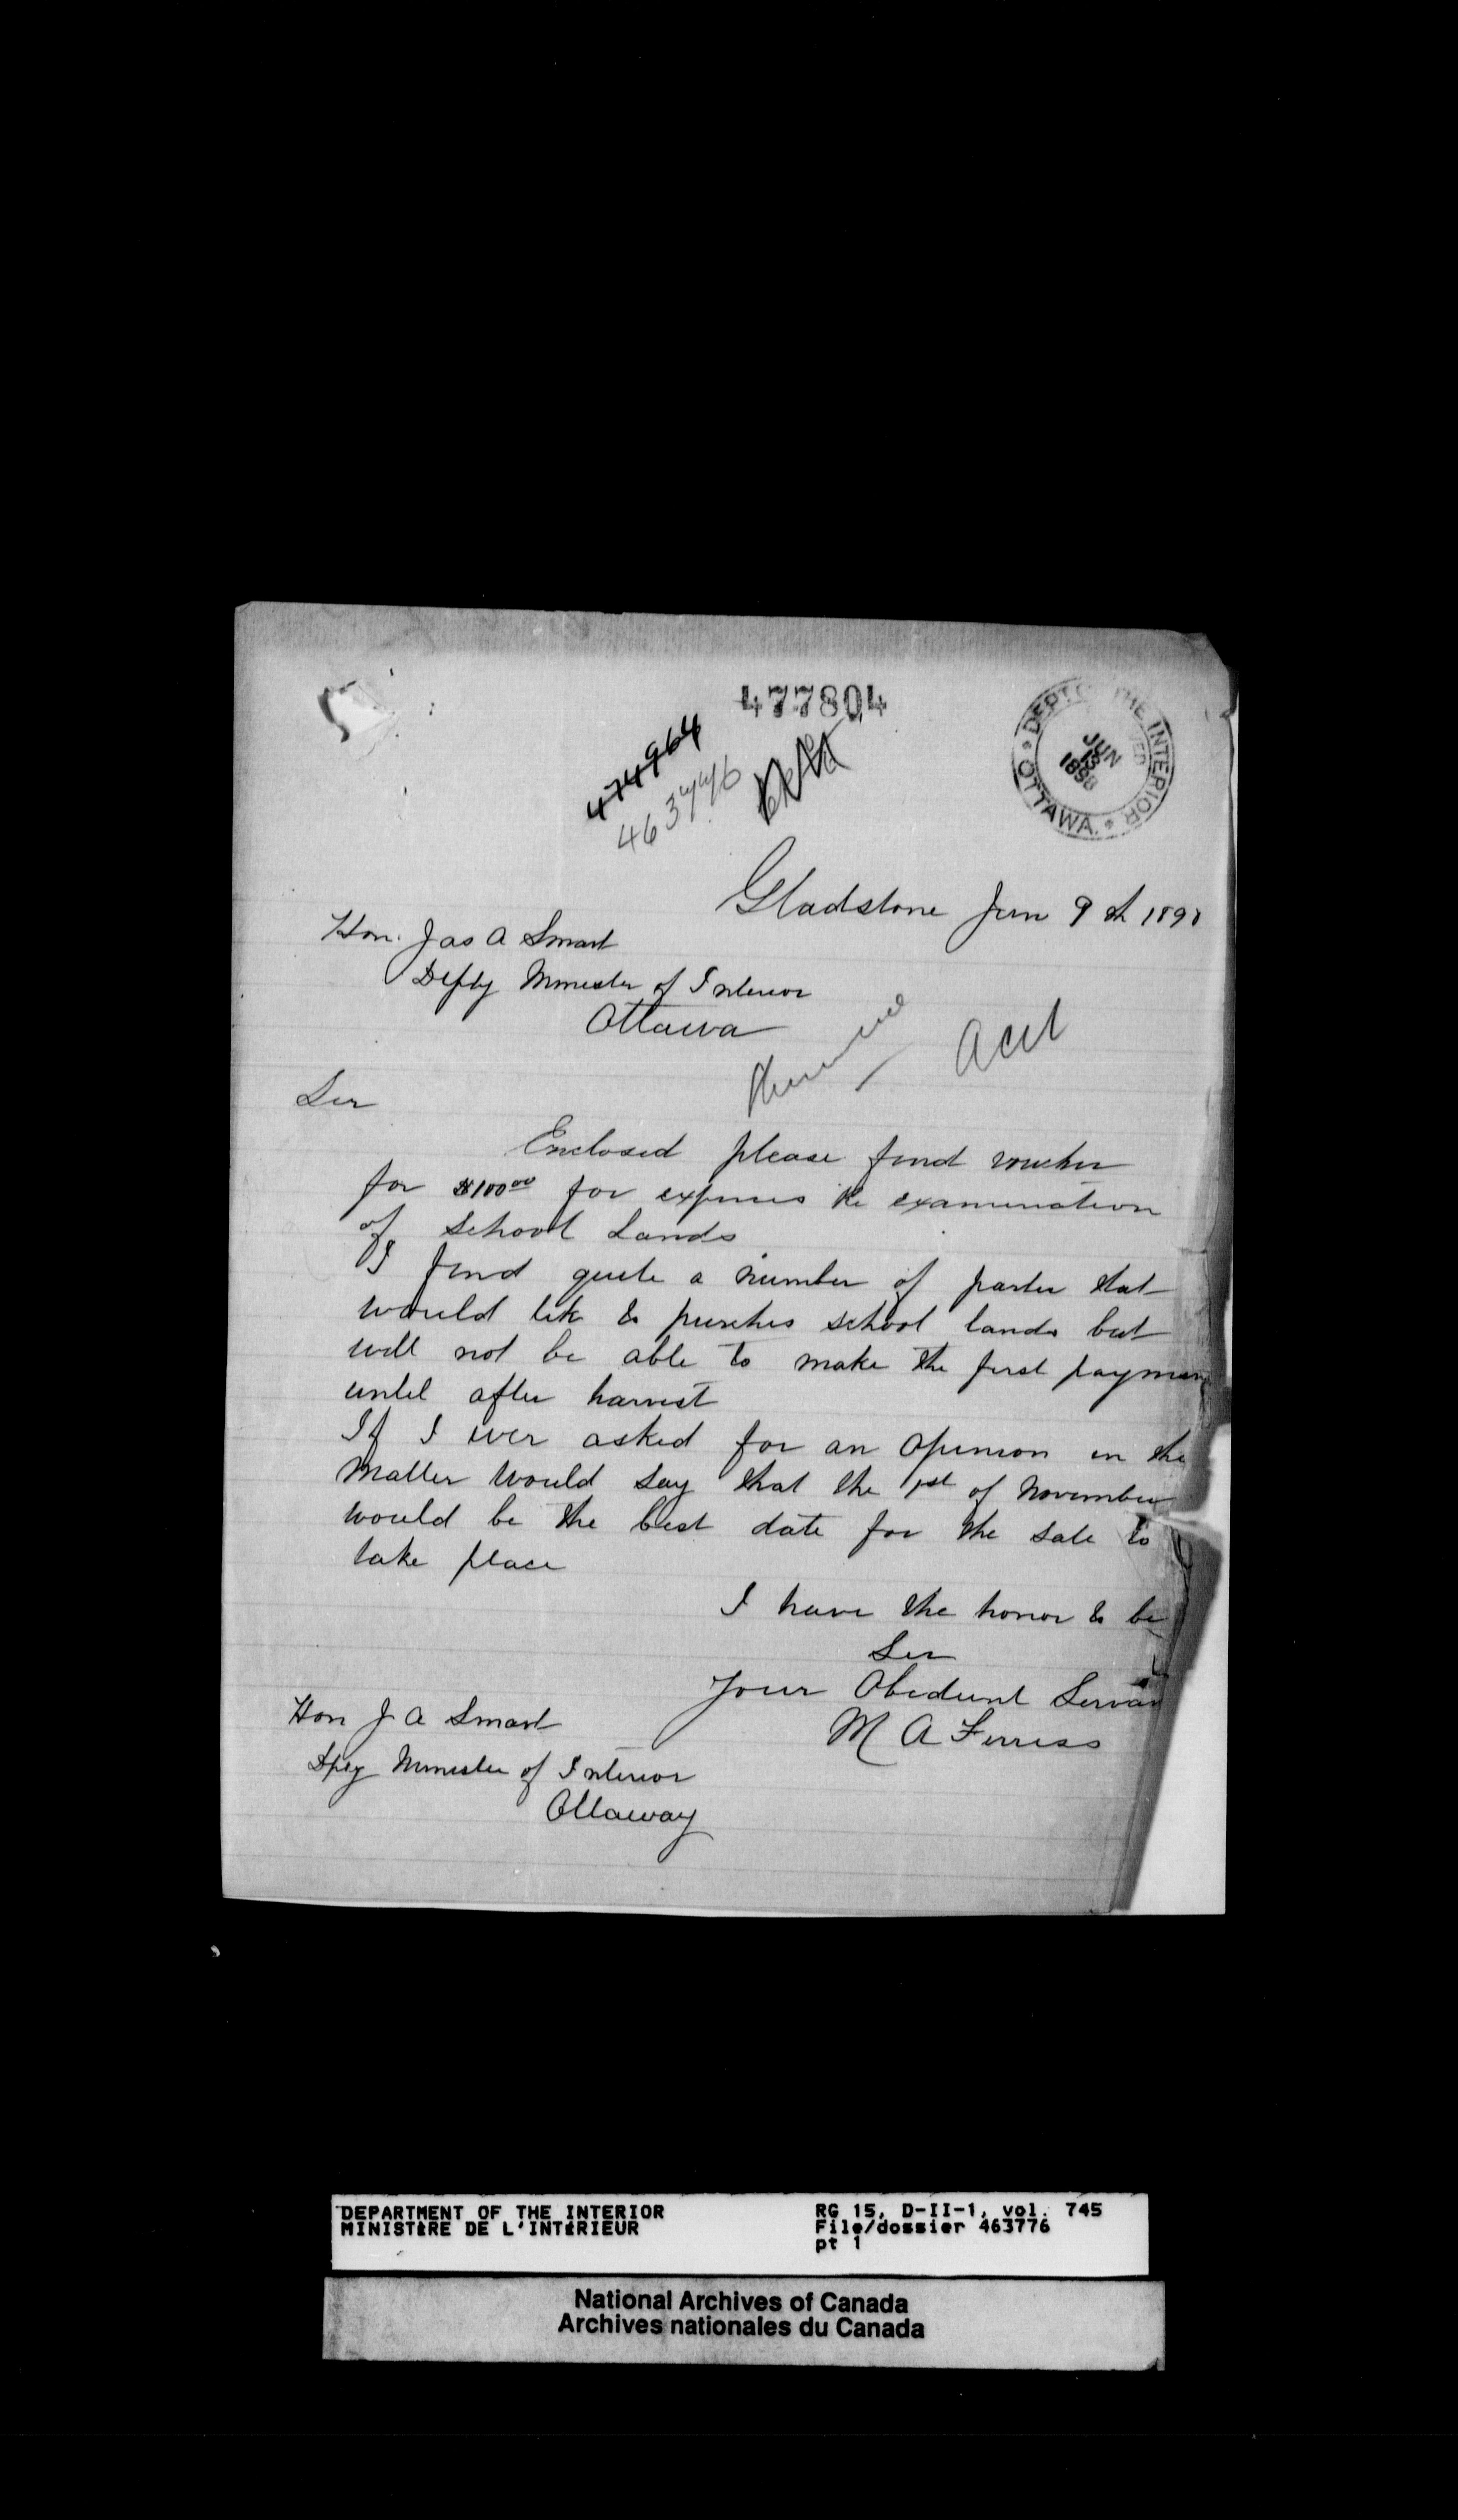 477804
474964
463776
DEPT. OF THE INTERIOR
JUN
13
1898
OTTAWA.
Gladstone Jun 9th 1898
Hon. Jas A Smart
Depty Minister of Interior
Ottawa
Acct
Sir
Enclosed please find voucher
for $100.00 for expenses re examination
of School Lands
I find quite a number of parties that
would like to purches school lands but
will not be able to make the first paymen
until after harvest
If I wer asked for an opinion in the
matter would say that the 1st of November
would be the best date for the sale to
take place
I have the honor to be
Sir
Your Obedient Servan
M A Ferriss
Hon J A Smart
Dpty Minister of Interior
Ottaway
DEPARTMENT OF THE INTERIOR
MINISTÈRE DE L'INTÉRIEUR
RG 15, D-II-1, vol. 745
File/dossier 463776
pt 1
National Archives of Canada
Archives nationales du Canada